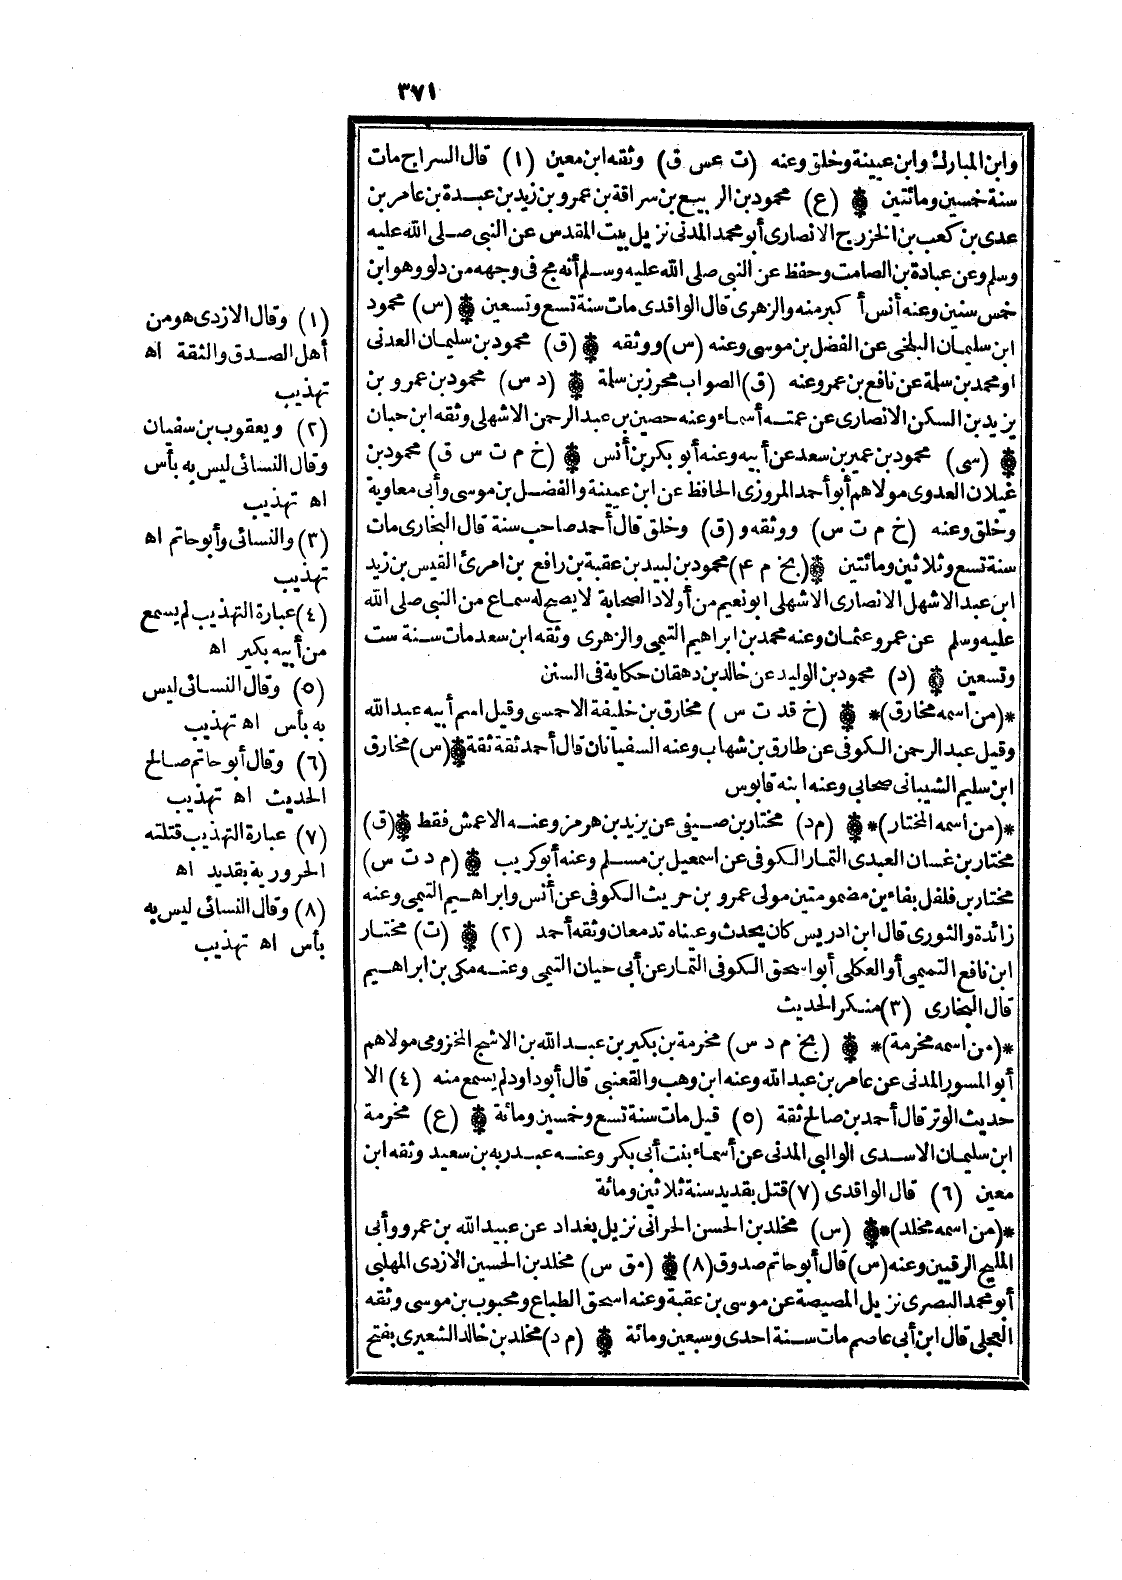 ٣٧١
وابن المبارك وابن عيينة وخلق وعنه (ت عس ق) وثقه ابن معين (١) قال السراج مات
سنة خمسين ومائتين ۞ (ع) محمود بن الربيع بن سراقة بن عمرو بن زيد بن عبدة بن عامر بن
عدى بن كعب بن الخزرج الانصارى أبو محمد المدنى نزيل بيت المقدس عن النبى صلى الله عليه
وسلم وعن عبادة بن الصامت وحفظ عن النبى صلى الله عليه وسلم أنه مج فى وجهه من دلو وهو ابن
خمس سنين وعنه أنس أكبر منه والزهرى قال الواقدى مات سنة تسع وتسعين ۞ (س) محمود
ابن سليمان البلخى عن الفضل بن موسى وعنه (س) ووثقه ۞ (ق) محمود بن سليمان العدنى
او محمد بن سلمة عن نافع بن عمر وعنه (ق) الصواب محرز بن سلمة ۞ (د س) محمود بن عمرو بن
يزيد بن السكن الانصارى عن عمته أسماء وعنه حصين بن عبد الرحمن الاشهلى وثقه ابن حبان
۞ (سى) محمود بن عمير بن سعد عن أبيه وعنه أبو بكر بن أنس ۞ (خ م ت س ق) محمود بن
غيلان العدوى مولاهم أبو أحمد المروزى الحافظ عن ابن عيينة والفضل بن موسى وأبى معاوية
وخلق وعنه (خ م ت س) ووثقه و(ق) وخلق قال أحمد صاحب سنة قال البخارى مات
سنة تسع وثلاثين ومائتين ۞ (بخ م ٤) محمود بن لبيد بن عقبة بن رافع بن امرئ القيس بن زيد
ابن عبد الاشهل الانصارى الاشهلى ابو نعيم من أولاد الصحابة لا يصح له سماع من النبى صلى الله
عليه وسلم عن عمر وعثمان وعنه محمد بن ابراهيم التيمى والزهرى وثقه ابن سعد مات سنة ست
وتسعين ۞ (د) محمود بن الوليد عن خالد بن دهقان حكاية فى السنن
*(من اسمه مخارق)* ۞ (خ قد ت س) مخارق بن خليفة الاحمسى وقيل اسم أبيه عبد الله
وقيل عبد الرحمن الكوفى عن طارق بن شهاب وعنه السفيانان قال أحمد ثقة ثقة ۞ (س) مخارق
ابن سليم الشيبانى صحابى وعنه ابنه قابوس
*(من اسمه المختار)* ۞ (م د) مختار بن صيفى عن يزيد بن هرمز وعنه الاعمش فقط ۞ (ق)
مختار بن غسان العبدى التمار الكوفى عن اسمعيل بن مسلم وعنه أبو كريب ۞ (م د ت س)
مختار بن فلفل بفاءين مضمومتين مولى عمرو بن حريث الكوفى عن أنس وابراهيم التيمى وعنه
زائدة والثورى قال ابن ادريس كان يحدث وعيناه تدمعان وثقه أحمد (٢) ۞ (ت) مختار
ابن نافع التميمى أو العكلى أبو اسحق الكوفى التمار عن أبى حيان التيمى وعنه مكى بن ابراهيم
قال البخارى (٣) منكر الحديث
*(من اسمه مخرمة)* ۞ (بخ م د س) مخرمة بن بكير بن عبد الله بن الاشج المخزومى مولاهم
أبو المسور المدنى عن عامر بن عبد الله وعنه ابن وهب والقعنبى قال أبو داود لم يسمع منه (٤) الا
حديث الوتر قال أحمد بن صالح ثقة (٥) قيل مات سنة تسع وخمسين ومائة ۞ (ع) مخرمة
ابن سليمان الاسدى الوالبى المدنى عن أسماء بنت أبى بكر وعنه عبد ربه بن سعيد وثقه ابن
معين (٦) قال الواقدى (٧) قتل بقديد سنة ثلاثين ومائة
*(من اسمه مخلد)* ۞ (س) مخلد بن الحسن الحرانى نزيل بغداد عن عبيد الله بن عمرو وأبى
المليح الرقيين وعنه (س) قال أبو حاتم صدوق (٨) ۞ (مق س) مخلد بن الحسين الازدى المهلبى
أبو محمد البصرى نزيل المصيصة عن موسى بن عقبة وعنه اسحق الطباع ومحبوب بن موسى وثقه
العجلى قال ابن أبى عاصم مات سنة احدى وسبعين ومائة ۞ (م د) مخلد بن خالد الشعيرى بفتح
(١) وقال الازدى هو من
أهل الصدق والثقة اه
تهذيب
(٢) ويعقوب بن سفيان
وقال النسائى ليس به بأس
اه تهذيب
(٣) والنسائى وأبو حاتم اه
تهذيب
(٤) عبارة التهذيب لم يسمع
من أبيه بكير اه
(٥) وقال النسائى ليس
به بأس اه تهذيب
(٦) وقال أبو حاتم صالح
الحديث اه تهذيب
(٧) عبارة التهذيب قتلته
الحرورية بقديد اه
(٨) وقال النسائى ليس به
بأس اه تهذيب